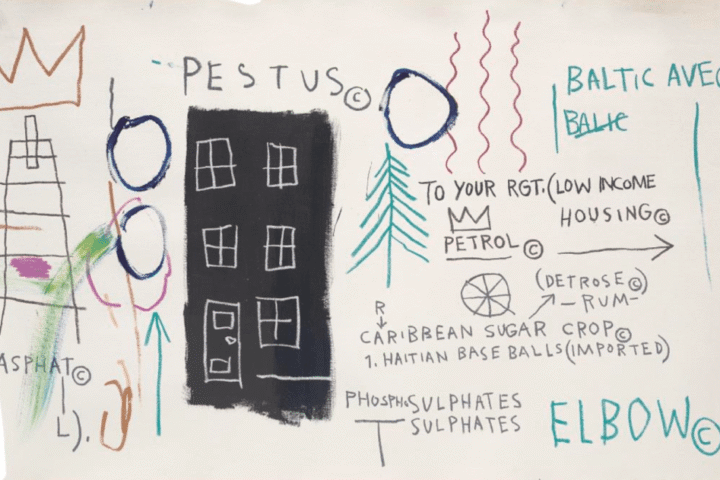 PESTUS©
BALTIC AVE
BALTIC
TO YOUR RGT. (LOW INCOME
HOUSING©
PETROL©
(DETROSE©)
—RUM—
R
CARIBBEAN SUGAR CROP©
1. HAITIAN BASE BALLS (IMPORTED)
ASPHAT©
L).
PHOSPHoSULPHATES
SULPHATES
ELBOW©